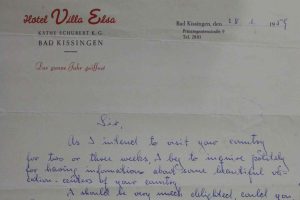 Hotel Villa Elsa
KÄTHE SCHUBERT K. G.
BAD KISSINGEN
Das ganze Jahr geöffnet
Bad Kissingen, den 1959
Prinzregentenstraße 9
Tel. 2881
Sir,
As I intend to visit your country
for two or three weeks, I beg to inquire politely
for having informations about some beautiful va-
cation-centers of your country.
I should be very much delighted, could you